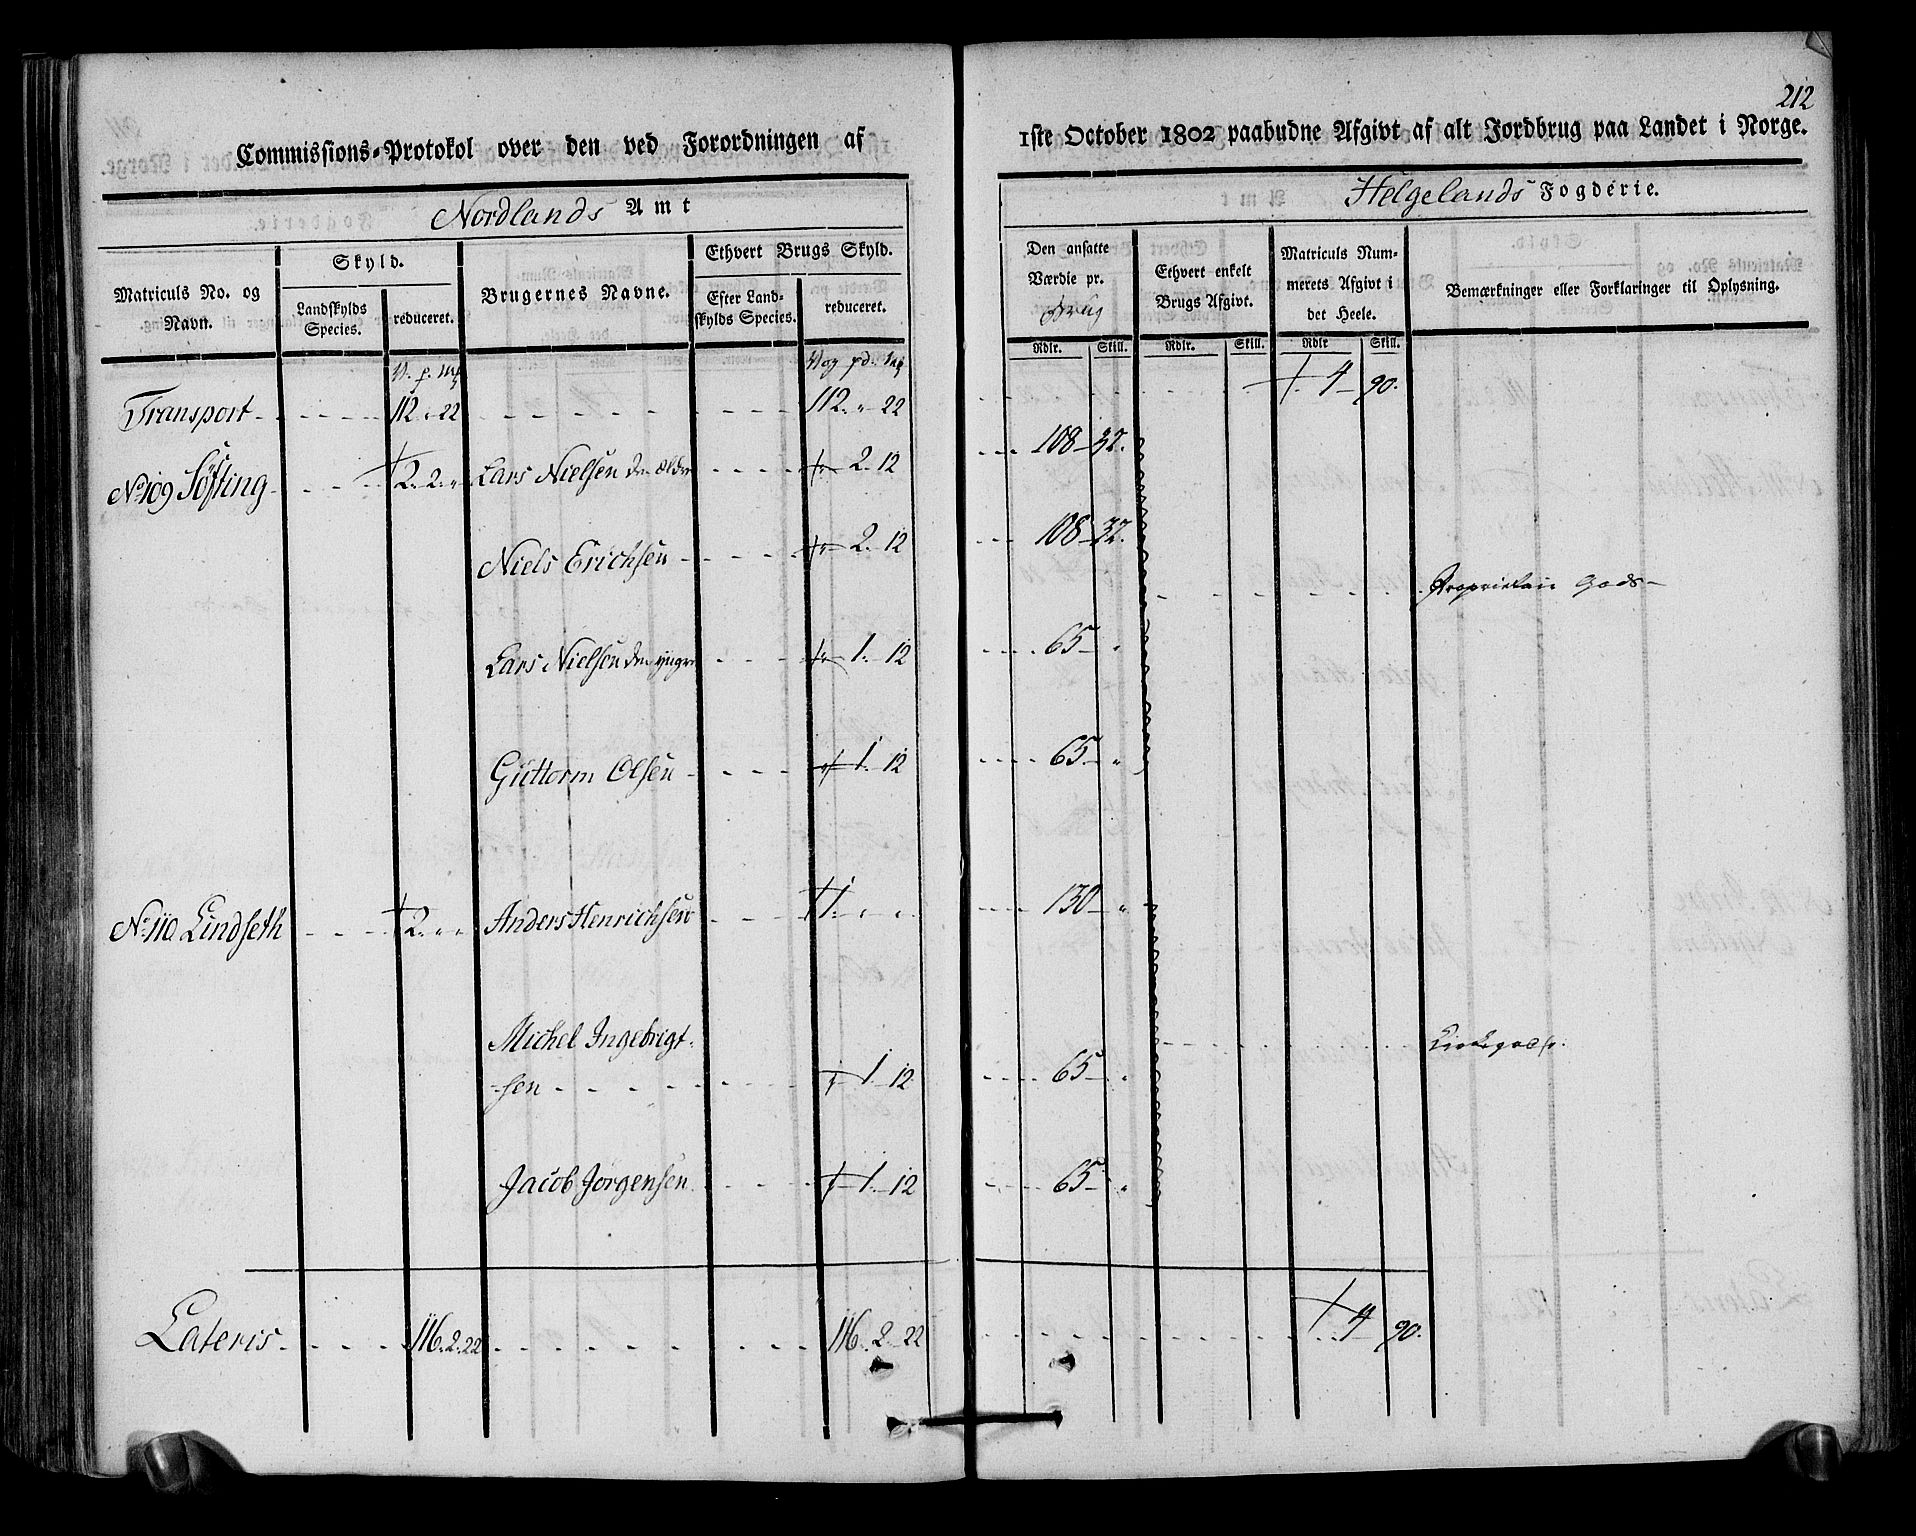 212
Commissions-Protokol over den ved Forordningen af
1ste October 1802 paabudne Afgivt af alt Jordbrug paa Landet i Norge.
Nordlands Amt
Helgelands Fogderie.
Matriculs No. og Navn.
Skyld.
Landskylds Species.
reduceret.
Brugernes Navne.
Ethvert Brugs Skyld.
Efter Landskylds Species.
reduceret.
Den ansatte Værdie pr. Brug
Ethvert enkelt Brugs Afgivt.
Matriculs Nummerets Afgivt i det Heele.
Bemærkninger eller Forklaringer til Oplysning.
Rdlr. Skill. Rdlr. Skill. Rdlr Skill.
V. p. mk Vog pd. mk
Transport 112 " 22 112. " 22 4 90.
No 109 Søfting 2. 2. " Lars Nielsen den ældre 2. 12 108 32.
Niels Erichsen 2. 12 108 32.
Proprietair Gods
Lars Nielsen den yngre 1. 12 65 "
Guttorm Olsen 1. 12 65 "
No 110 Lindseth 2. " " Anders Henrichsen 1. " " 130 "
Michel Ingebrigt-
sen 1 12 65 "
Kirkegods.
Jacob Jørgensen 1. 12 65 "
Lateris 116. 2. 22 116. 2 22 4 90.